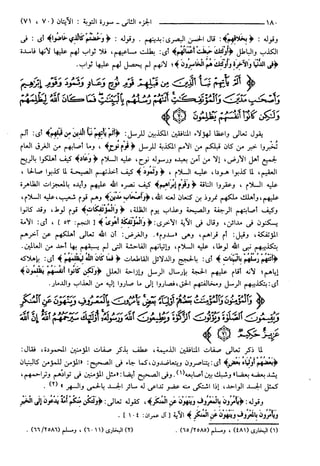 ١٨٠ الجزء الثاني - سورة التوبة: الآيتان (٧٠ ، ٧١)
وقوله: ﴿بخلاقهم﴾: قال الحسن البصري: بدينهم. وقوله: ﴿وخضتم كالذي خاضوا﴾ أي: في
الكذب والباطل ﴿أولئك حبطت أعمالهم﴾ أي: بطلت مساعيهم، فلا ثواب لهم عليها لأنها فاسدة
﴿في الدنيا والآخرة وأولئك هم الخاسرون﴾؛ لأنهم لم يحصل لهم عليها ثواب.
﴿ألم يأتهم نبأ الذين من قبلهم قوم نوح وعاد وثمود وقوم إبراهيم
وأصحاب مدين والمؤتفكات أتتهم رسلهم بالبينات فما كان الله ليظلمهم
ولكن كانوا أنفسهم يظلمون ٧٠﴾
يقول تعالى واعظا لهؤلاء المنافقين المكذبين للرسل: ﴿ألم يأتهم نبأ الذين من قبلهم﴾ أي: ألم
تخبروا خبر من كان قبلكم من الأمم المكذبة للرسل ﴿قوم نوح﴾، وما أصابهم من الغرق العام
لجميع أهل الأرض، إلا من آمن بعبده ورسوله نوح، عليه السلام، ﴿وعاد﴾ كيف أهلكوا بالريح
العقيم، لما كذبوا هودا، عليه السلام، ﴿وثمود﴾ كيف أخذتهم الصيحة لما كذبوا صالحا،
عليه السلام، وعقروا الناقة ﴿وقوم إبراهيم﴾ كيف نصره الله عليهم وأيده بالمعجزات الظاهرة
عليهم، وأهلك ملكهم نمروذ بن كنعان لعنه الله، ﴿وأصحاب مدين﴾ وهم قوم شعيب، عليه السلام،
وكيف أصابتهم الرجفة والصيحة وعذاب يوم الظلة، ﴿والمؤتفكات﴾ قوم لوط، وقد كانوا
يسكنون في مدائن، وقال في الآية الأخرى: ﴿والمؤتفكة أهوى﴾ [النجم: ٥٣] أي: الأمة
المؤتفكة، وقيل: أم قراهم، وهي «سدوم». والغرض: أن الله تعالى أهلكهم عن آخرهم
بتكذيبهم نبي الله لوطا، عليه السلام، وإتيانهم الفاحشة التي لم يسبقهم بها أحد من العالمين.
﴿أتتهم رسلهم بالبينات﴾ أي: بالحجج والدلائل القاطعات ﴿فما كان الله ليظلمهم﴾ أي: بإهلاكه
إياهم؛ لأنه أقام عليهم الحجة بإرسال الرسل وإزاحة العلل ﴿ولكن كانوا أنفسهم يظلمون﴾
أي: بتكذيبهم الرسل ومخالفتهم الحق، فصاروا إلى ما صاروا إليه من العذاب والدمار.
﴿والمؤمنون والمؤمنات بعضهم أولياء بعض يأمرون بالمعروف وينهون عن المنكر
ويقيمون الصلاة ويؤتون الزكاة ويطيعون الله ورسوله أولئك سيرحمهم الله إن الله
عزيز حكيم ٧١﴾
لما ذكر تعالى صفات المنافقين الذميمة، عطف بذكر صفات المؤمنين المحمودة، فقال:
﴿بعضهم أولياء بعض﴾ أي: يتناصرون ويتعاضدون، كما جاء في الصحيح: «المؤمن للمؤمن كالبنيان
يشد بعضه بعضا» وشبك بين أصابعه(١). وفي الصحيح أيضا: «مثل المؤمنين في توادهم وتراحمهم،
كمثل الجسد الواحد، إذا اشتكى منه عضو تداعى له سائر الجسد بالحمى والسهر»(٢).
وقوله: ﴿يأمرون بالمعروف وينهون عن المنكر﴾، كقوله تعالى: ﴿ولتكن منكم أمة يدعون إلى الخير
ويأمرون بالمعروف وينهون عن المنكر﴾ الآية [آل عمران: ١٠٤].
(١) البخاري (٤٨١)، ومسلم (٢٥٨٥/ ٦٥). (٢) البخاري (٦٠١١)، ومسلم (٢٥٨٦/ ٦٦).